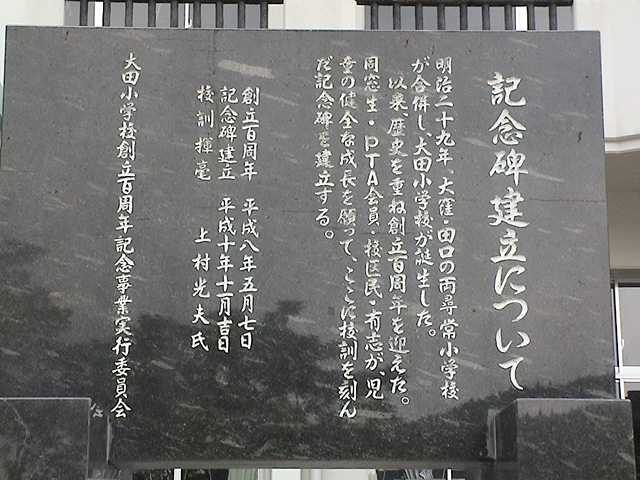 記念碑建立について
明治二十九年、大窪・田口の両尋常小学校
が合併し、大田小学校が誕生した。
以来、歴史を重ね創立百周年を迎えた。
同窓生・PTA会員・校区民・有志が、児
童の健全な成長を願って、ここに校訓を刻ん
だ記念碑を建立する。
創立百周年 平成八年五月七日
記念碑建立 平成十年十一月吉日
校訓揮毫 上村光夫氏
大田小学校創立百周年記念事業実行委員会